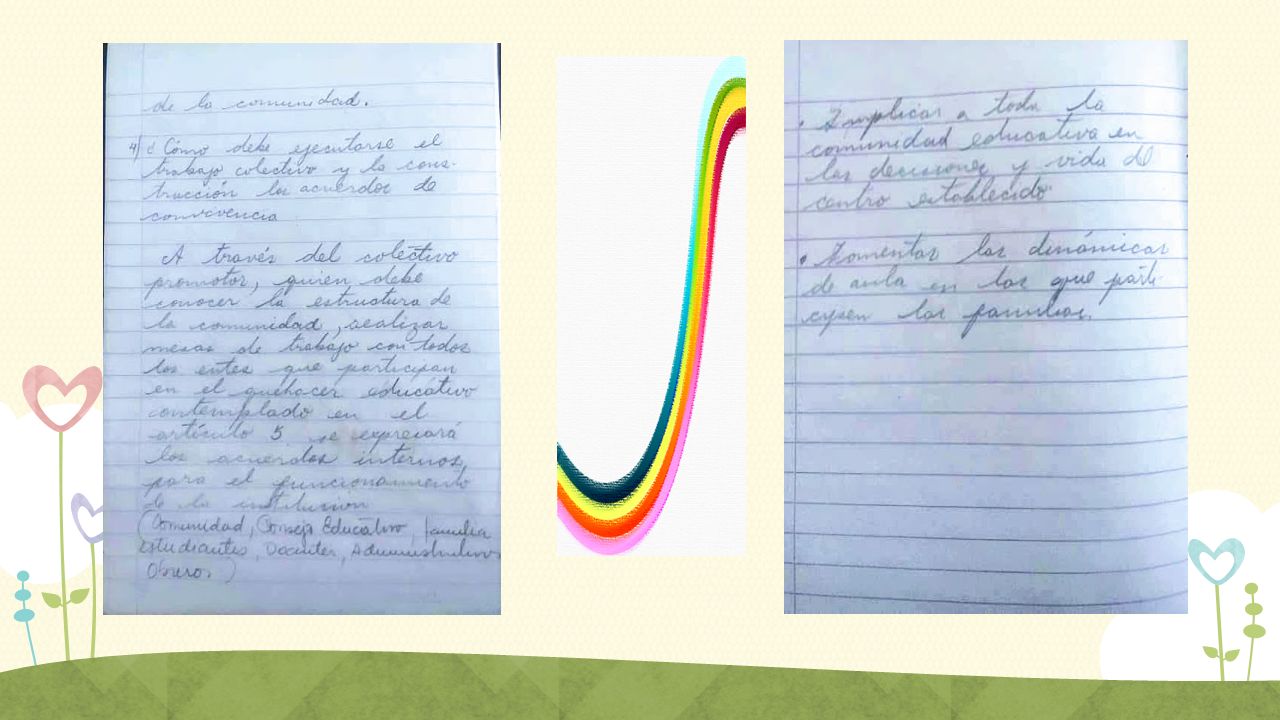 de la comunidad.
4) ¿Cómo debe ejecutarse el
trabajo colectivo y la cons-
trucción los acuerdos de
convivencia
A través del colectivo
promotor, quien debe
conocer la estructura de
la comunidad, realizar
mesas de trabajo con todos
los entes que participan
en el quehacer educativo
contemplado en el
artículo 5 se expresará
los acuerdos internos,
para el funcionamiento
de la institución
(Comunidad, Consejo Educativo, familia
Estudiantes, Docentes, Administrativos
Obreros)
• Implicar a toda la
comunidad educativa en
las decisiones y vida del
centro establecido
• Fomentar las dinámicas
de aula en las que parti-
cipen las familias.